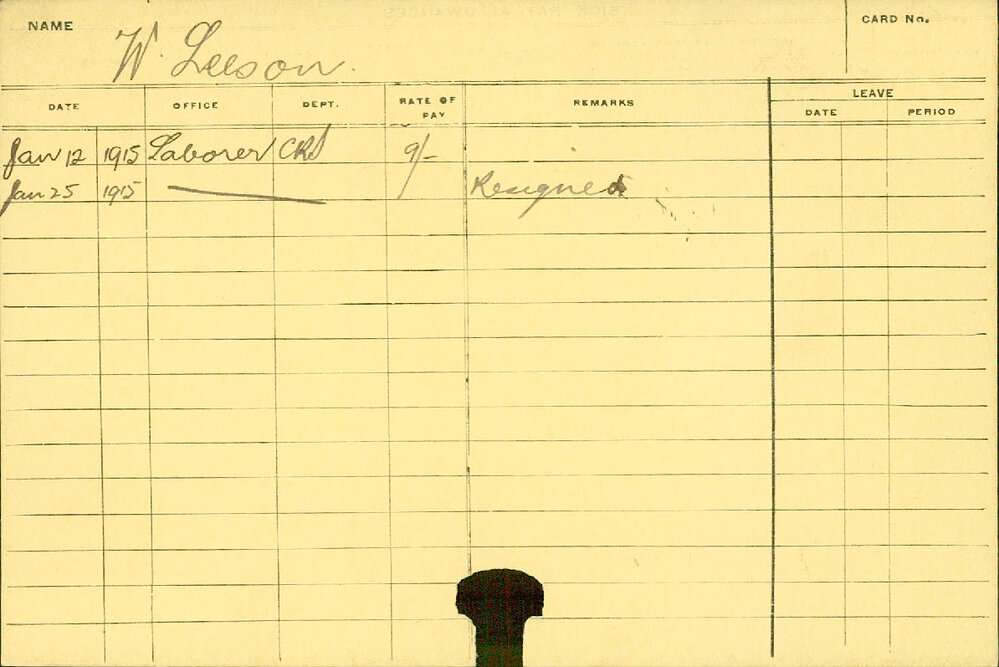 NAME W. Leeson. CARD No.
DATE OFFICE DEPT. RATE OF PAY REMARKS LEAVE
DATE PERIOD
Jan 12 1915 Laborer CRS 9/-
Jan 25 1915 Resigned